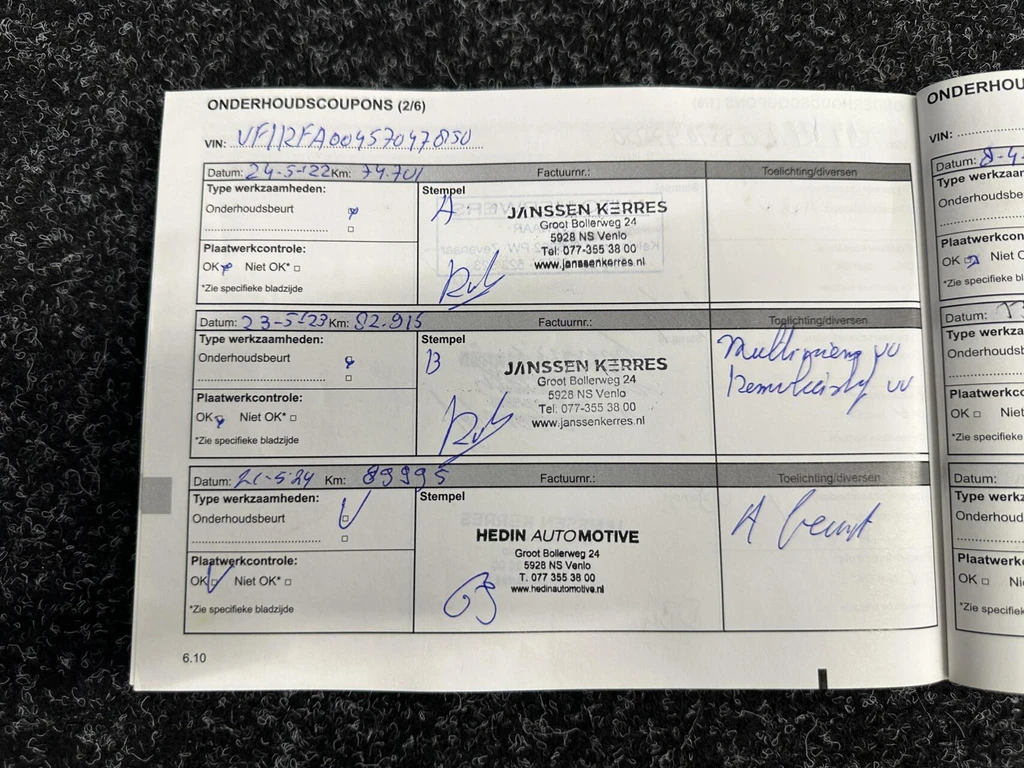 ONDERHOUDSCOUPONS (2/6)
VIN: VF1RFA00457047850
Datum: 24-5-'22 Km: 74.701 Factuurnr.: Toelichting/diversen
Type werkzaamheden:
Onderhoudsbeurt
Plaatwerkcontrole:
OK Niet OK*
*Zie specifieke bladzijde
Stempel
A
JANSSEN KERRES
Groot Bollerweg 24
5928 NS Venlo
Tel: 077-355 38 00
www.janssenkerres.nl
Datum: 23-5-'23 Km: 82.915 Factuurnr.: Toelichting/diversen
Type werkzaamheden:
Onderhoudsbeurt
Plaatwerkcontrole:
OK Niet OK*
*Zie specifieke bladzijde
Stempel
B
JANSSEN KERRES
Groot Bollerweg 24
5928 NS Venlo
Tel: 077-355 38 00
www.janssenkerres.nl
vv
vv
Datum: 21-5-24 Km: 89995 Factuurnr.: Toelichting/diversen
Type werkzaamheden:
Onderhoudsbeurt
Plaatwerkcontrole:
OK Niet OK*
*Zie specifieke bladzijde
Stempel
HEDIN AUTOMOTIVE
Groot Bollerweg 24
5928 NS Venlo
T. 077 355 38 00
www.hedinautomotive.nl
A beurt
6.10
ONDERHOU
VIN:
Datum: 8-4-
Type werkzaam
Onderhoudsbe
Plaatwerkcon
OK Niet O
*Zie specifieke bl
Datum:
Type werkza
Onderhoudsb
Plaatwerkco
OK Niet
*Zie specifieke
Datum:
Type werkz
Onderhoud
Plaatwerk
OK Ni
*Zie specifiek